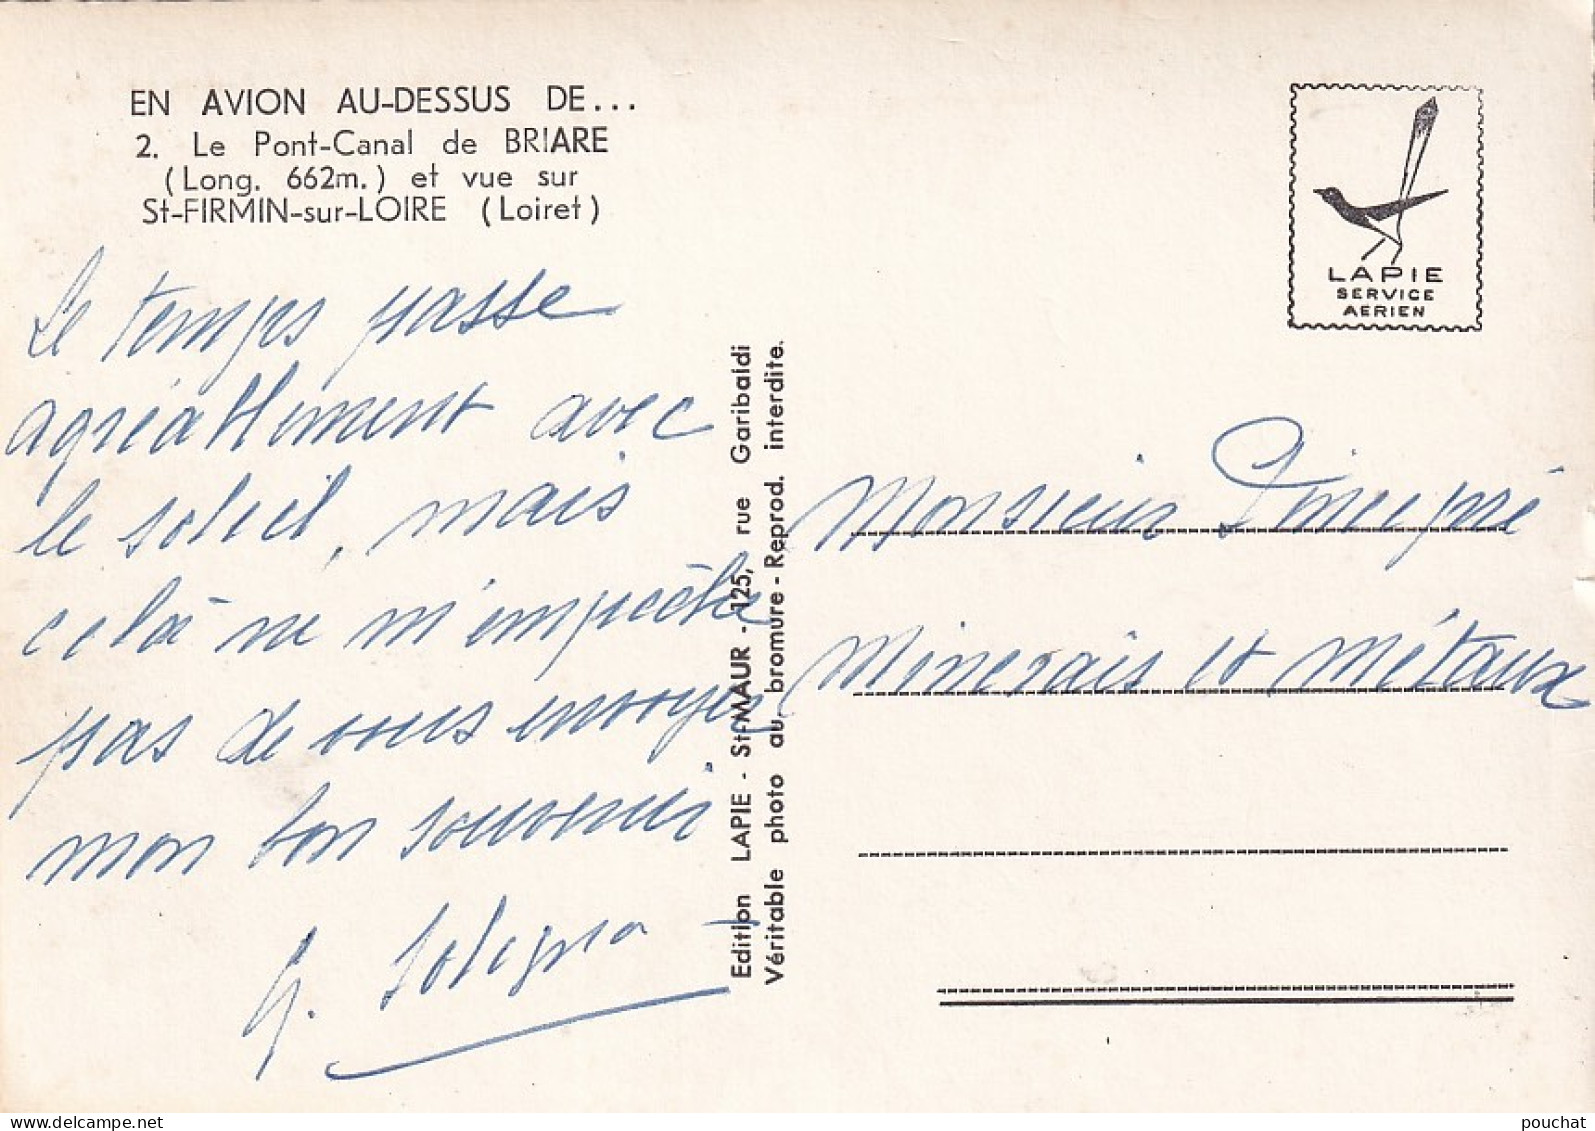 EN AVION AU-DESSUS DE...
2. Le Pont-Canal de BRIARE
(Long. 662m.) et vue sur
St-FIRMIN-sur-LOIRE (Loiret)
Le temps passe
agréablement avec
le soleil, mais
celà ne m'empêche
pas de vous envoyer
mon bon souvenir
G.
Edition LAPIE - St-MAUR - 125, rue Garibaldi
Véritable photo au bromure - Reprod. interdite.
LAPIE
SERVICE
AERIEN
Monsieur
Minerais et Métaux
pouchat